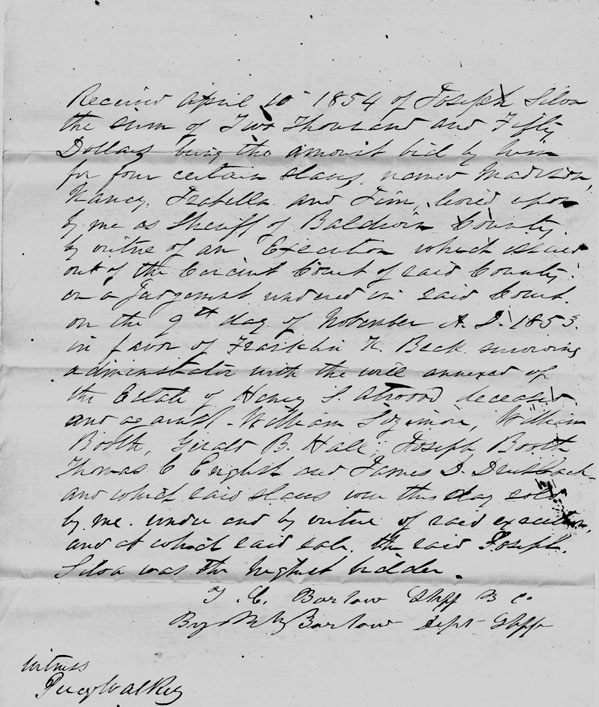 Received April 10th 1854 of Joseph Silva
the sum of Two Thousand and Fifty
Dollars being the amount bid by him
for four certain slaves, named Madison,
Nancy, Isabella and Jim, levied upon
by me as Sheriff of Baldwin County
by virtue of an Execution which issued
out of the Circuit Court of said County
on a Judgement rendered in said Court
on the 9th day of November A.D. 1853
in favor of Franklin K. Beck surviving
administrator with the will annexed of
the Estate of Henry S. Atwood deceased
and against William Sizemore, William
Booth, Gerald B. Hall, Joseph Booth
Thomas C English and James D.
and which said slaves were this day sold
by me under and by virtue of said execution,
and at which said sale the said Joseph
Silva was the highest bidder.
T. C. Barlow Shff B Co
By Barlow Dept Shff
Witness
Percy Walker